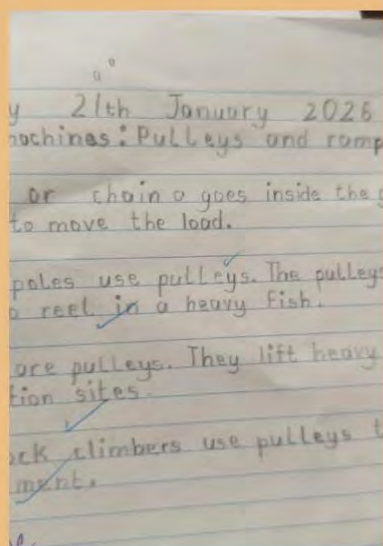 y 21th January 2026
machines: Pulleys and ramp
or chain a goes inside the g
to move the load.
poles use pulleys. The pulleys
o reel in a heavy fish.
are pulleys. They lift heavy
tion sites.
ock climbers use pulleys t
ment.